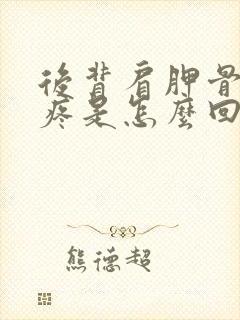 後背肩胛骨
疼是怎麼回
熊德超